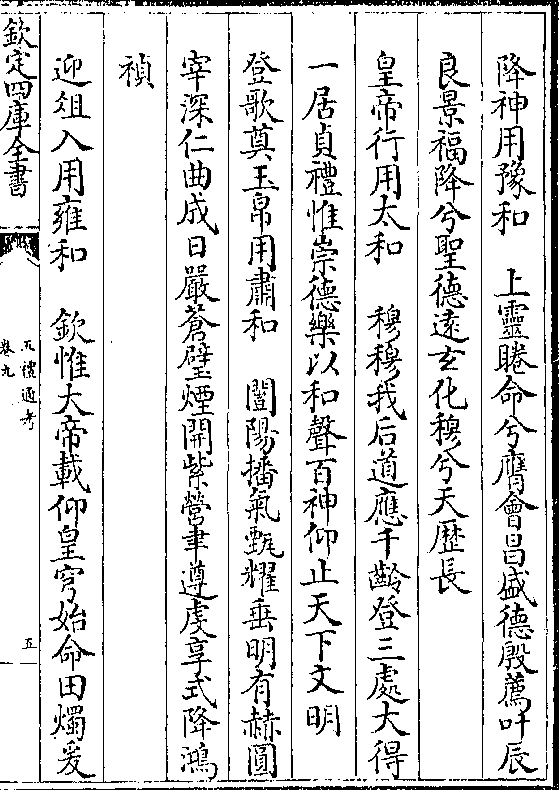 降神用豫和　上靈睠命兮膺會昌盛德殷薦叶辰
良景福降兮聖德遠玄化穆兮天歷長
皇帝行用太和　穆穆我后道應千齡登三處大得
一居貞禮惟崇德樂以和聲百神仰止天下文明
登歌奠玉帛用肅和　闓陽播氣甄耀垂明有赫圓
宰深仁曲成日嚴蒼璧煙開紫營聿遵虔享式降鴻
禎
迎俎入用雍和　欽惟大帝載仰皇穹始命田燭爰
欽定四庫全書
五禮通考
卷九
五